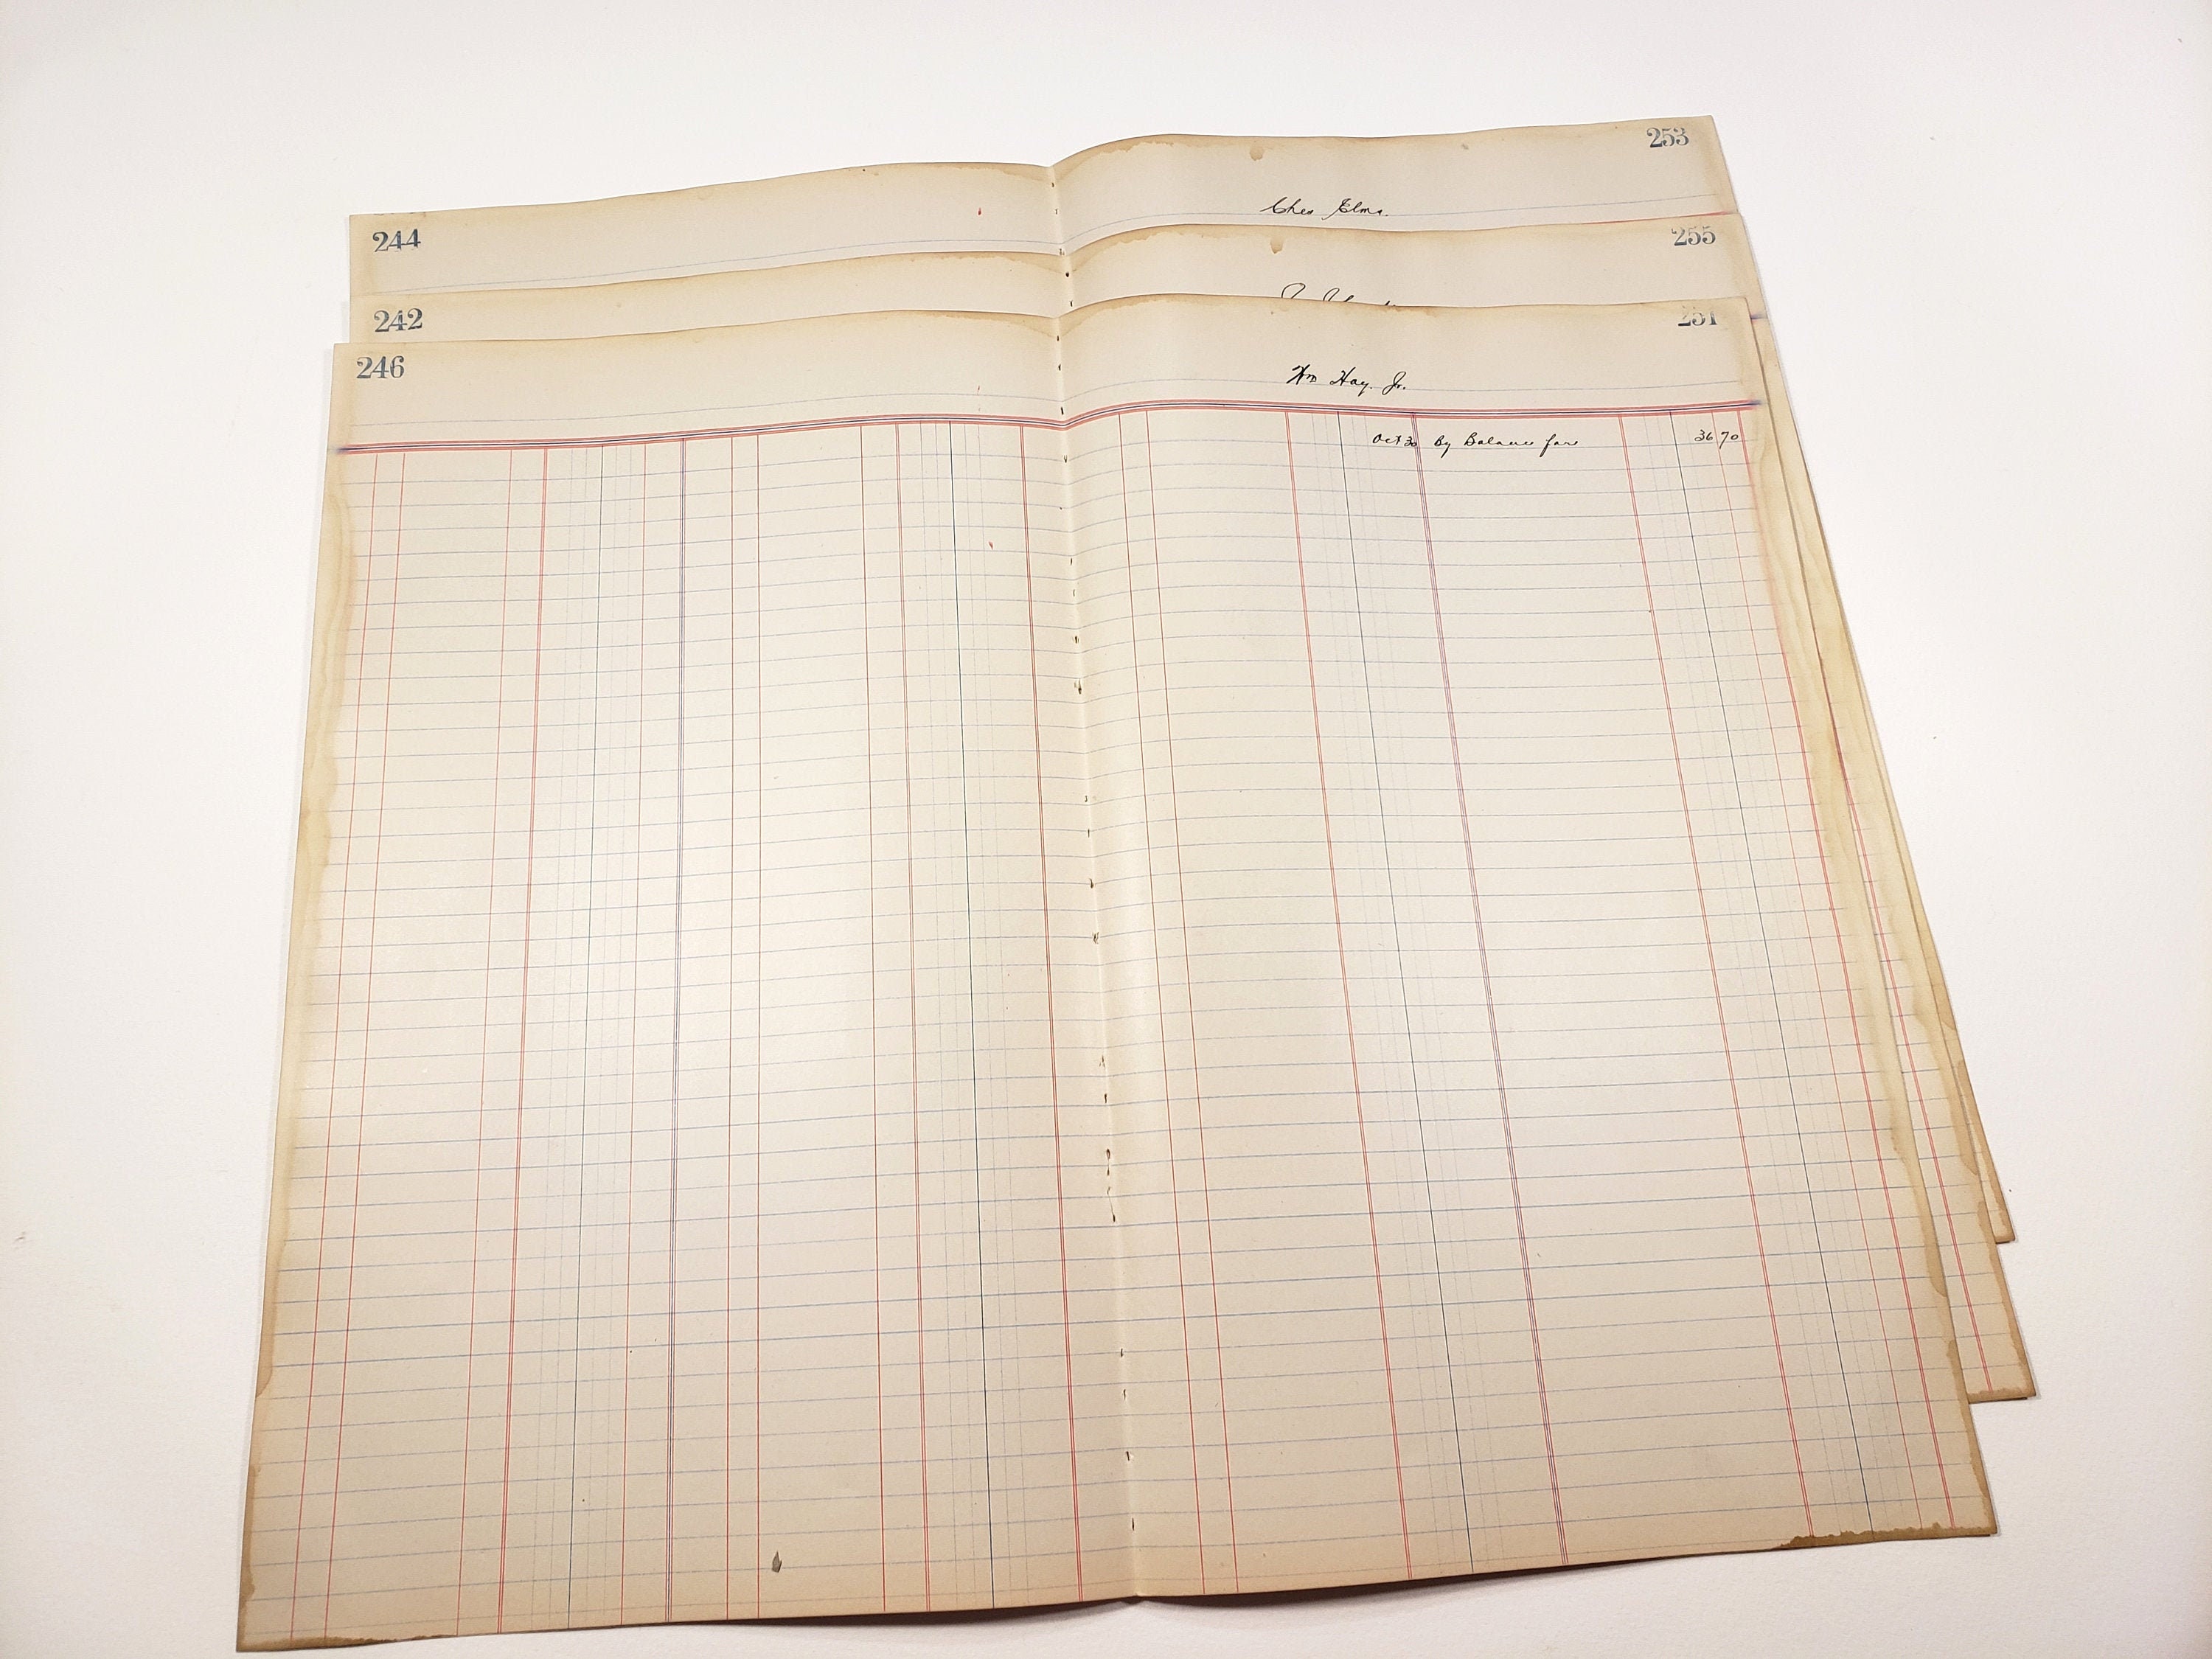 253
Chas Elma.
244
255
242
251
246
Wm Hay. Jr.
Oct 30 By Balance 36 70